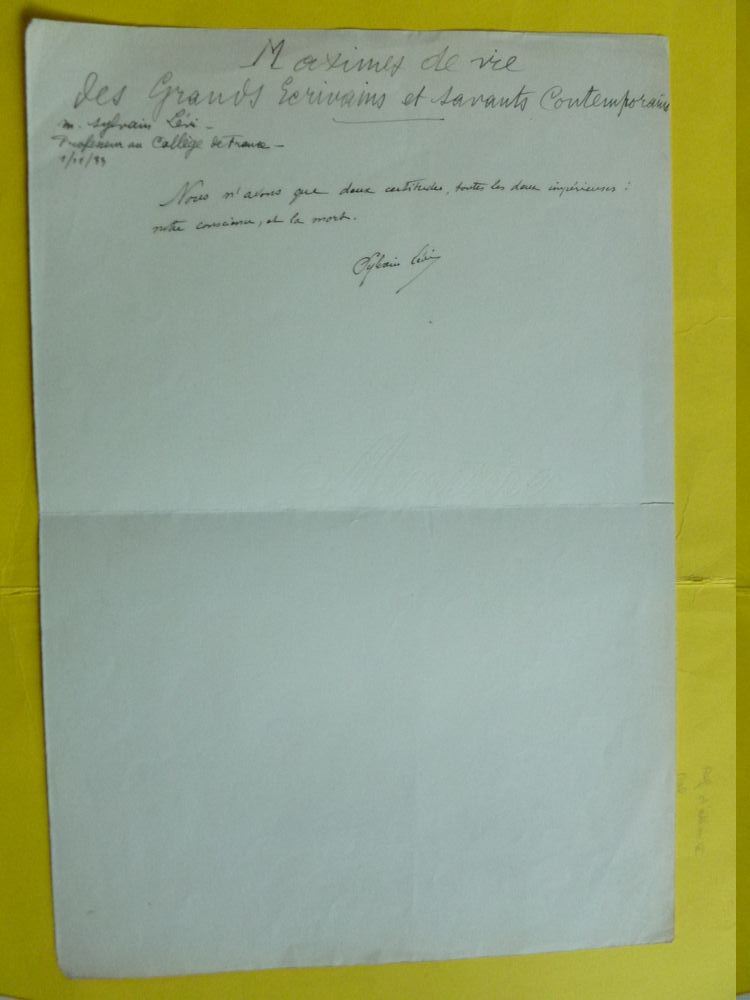 Maximes de vie
des Grands Ecrivains et savants Contemporains
M. Sylvain Lévi -
Professeur au Collège de France -
1/11/33
Nous n'avons que deux certitudes, toutes les deux impérieuses :
notre conscience, et la mort.
Sylvain Lévi